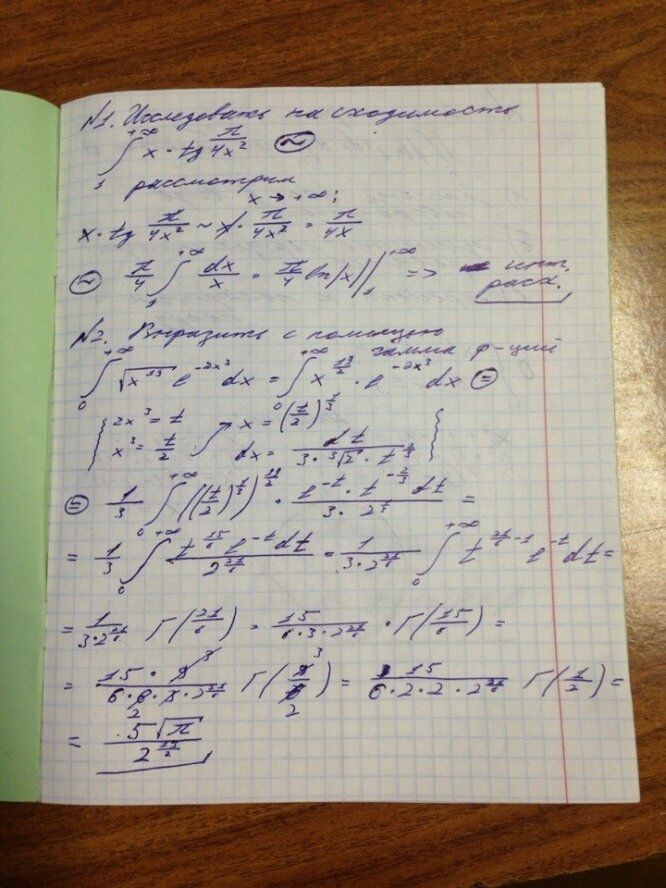 №1. Исследовать на сходимость
∫₁^{+∞} x · tg π/4x² (~)
рассмотрим
x → +∞:
x · tg π/4x² ~ x · π/4x² = π/4x
(~) π/4 ∫₁^{+∞} dx/x = π/4 ln|x| |₁^{+∞} => инт. расх.
№2. Выразить с помощью
гамма ф-ций
∫₀^{+∞} √x¹⁹ e^{-2x³} dx = ∫₀^{+∞} x^{19/2} · e^{-2x³} dx (=)
{ 2x³ = t
x³ = t/2 → x = (t/2)^{1/3}
dx = dt / 3 · ³√2 · t^{2/3} }
(=) 1/3 ∫₀^{+∞} ((t/2)^{1/3})^{19/2} · e^{-t} · t^{-2/3} dt / 3 · 2^{1/3} =
= 1/3 ∫₀^{+∞} t^{15/6} e^{-t} dt / 2^{21/6} = 1 / 3 · 2^{21/6} ∫₀^{+∞} t^{21/6 - 1} e^{-t} dt =
= 1 / 3 · 2^{21/6} Γ(21/6) = 15 / 6 · 3 · 2^{21/6} · Γ(15/6) =
= 15 · 9 3 / 6 · 6 · 3 · 2^{21/6} 2 Γ(9 3 / 6 2) = 15 / 6 · 2 · 2 · 2^{21/6} Γ(1/2) =
= 5 √π / 2^{13/2}